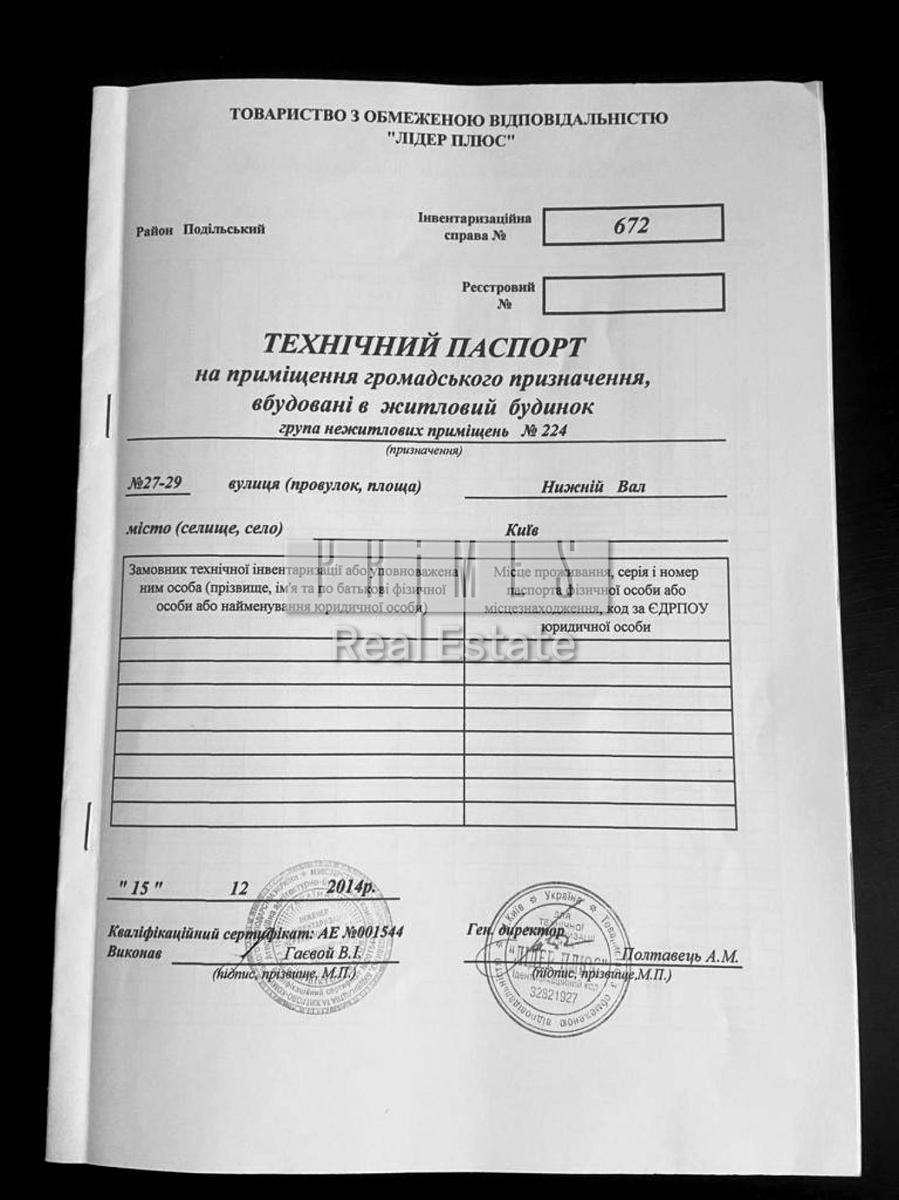 ТОВАРИСТВО З ОБМЕЖЕНОЮ ВІДПОВІДАЛЬНІСТЮ
"ЛІДЕР ПЛЮС"
Район Подільський
Інвентаризаційна
справа №
672
Реєстровий
№
ТЕХНІЧНИЙ ПАСПОРТ
на приміщення громадського призначення,
вбудовані в житловий будинок
група нежитлових приміщень № 224
(призначення)
№27-29 вулиця (провулок, площа) Нижній Вал
місто (селище, село) Київ
Замовник технічної інвентаризації або уповноважена
ним особа (прізвище, ім'я та по батькові фізичної
особи або найменування юридичної особи)
Місце проживання, серія і номер
паспорта фізичної особи або
місцезнаходження, код за ЄДРПОУ
юридичної особи
PRIMES
Real Estate
"15" 12 2014р.
Кваліфікаційний сертифікат: АЕ №001544
Виконав Гаєвой В.І.
(підпис, прізвище, М.П.)
Ген. директор
Полтавець А.М.
(підпис, прізвище,М.П.)
Україна
Київ
для
технічної
"ЛІДЕР ПЛЮС"
32821927